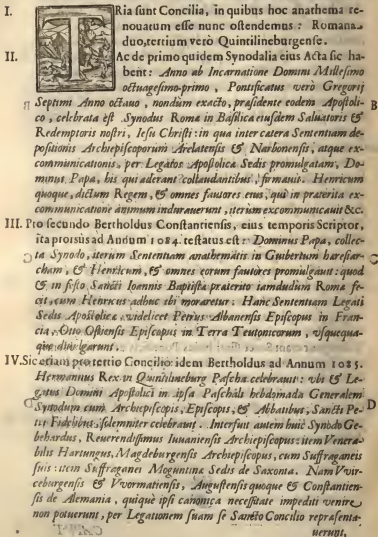 I. TRia sunt Concilia, in quibus hoc anathema re-
nouatum esse nunc ostendemus: Romana
duo, tertium verò Quintilineburgense.
II. Ac de primo quidem Synodalia eius Acta sic ha-
bent: Anno ab Incarnatione Domini Millesimo
octuagesimo-primo, Pontificatus verò Gregorij
Septimi Anno octauo, nondùm exacto, præsidente eodem Apostoli-
co, celebrata est Synodus Roma in Basilica eiusdem Saluatoris & B
Redemptoris nostri, Iesu Christi: in qua inter cætera Sententiam de-
positionis Archiepiscoporum Arelatensis & Narbonensis, atque ex-
communicationis, per Legatos Apostolica Sedis promulgatam, Do-
minus Papa, his qui aderant collaudantibus, firmauit. Henricum
quoque, dictum Regem, & omnes fautores eius, qui in præterita ex-
communicatione animum indurauerunt, iterùm excommunicauit &c.
III. Pro secundo Bertholdus Constantiensis, eius temporis Scriptor,
ita prorsùs ad Annum 1084. testatus est: Dominus Papa, collec-
ta Synodo, iterum Sententiam anathematis in Guibertum hæresiar- C
cham, & Henricum, & omnes eorum fautores promulgauit: quod
& in festo Sancti Ioannis Baptistæ præterito iamdudum Roma fe-
cit, cum Henricus adhuc ibi moraretur: Hanc Sententiam Legati
Sedis Apostolicæ, videlicet Petrus Albanensis Episcopus in Fran-
cia, Otto Ostiensis Episcopus in Terra Teutonicorum, vsquequa-
que diuulgarunt.
IV. Sic etiam pro tertio Concilio idem Bertholdus ad Annum 1085.
Hermannus Rex in Quintilineburg Pascha celebrauit: vbi & Le-
gatus Domini Apostolici in ipsa Paschali hebdomada Generalem
Synodum cum Archiepiscopis, Episcopis, & Abbatibus, Sancti Pe- D
tri Fidelibus, solemniter celebrauit. Interfuit autem huic Synodo Ge-
behardus, Reuerendissimus Iuuaniensis Archiepiscopus: item Venera-
bilis Hartungus, Magdeburgensis Archiepiscopus, cum Suffraganeis
suis: item Suffraganei Moguntina Sedis de Saxonia. Nam Vvir-
ceburgensis & Vvormatiensis, Augustensis quoque & Constantien-
sis de Alemania, quique ipsi canonica necessitate impediti venire
non potuerunt, per Legationem suam se Sancto Concilio repræsenta-
uerunt,